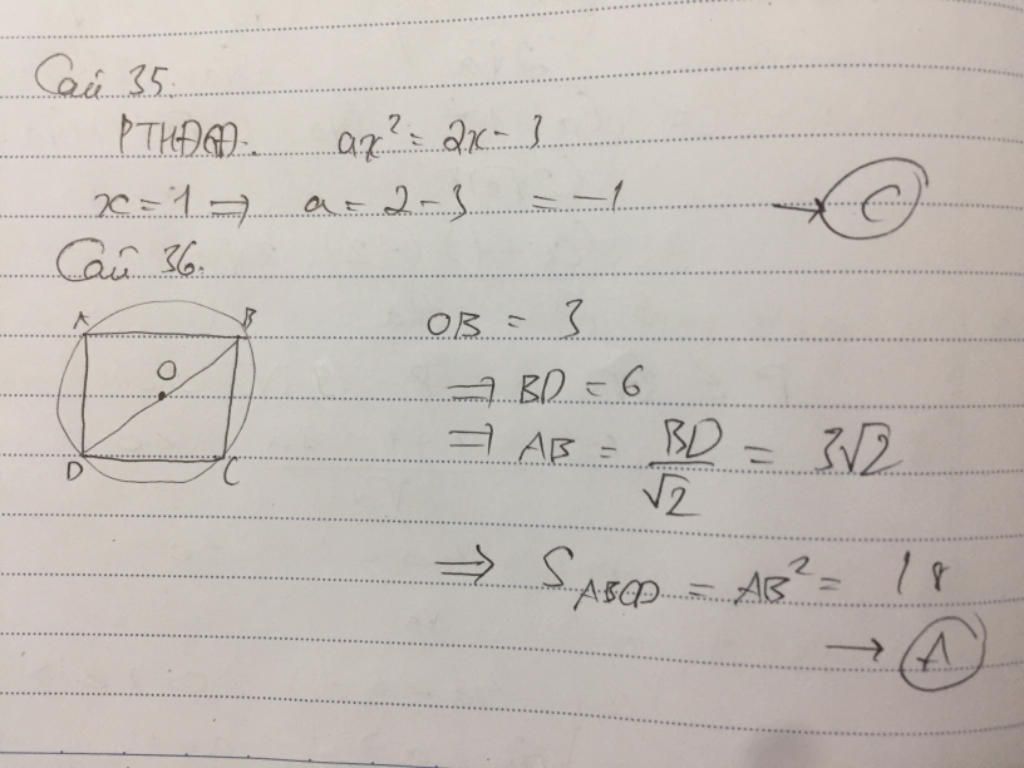 Câu 35.
PTHĐGĐ. ax² = 2x - 3
x = 1 ⇒ a = 2 - 3 = -1 → C
Câu 36.
A B
O
D C
OB = 3
⇒ BD = 6
⇒ AB = BD/√2 = 3√2
⇒ S_ABCD = AB² = 18
→ A